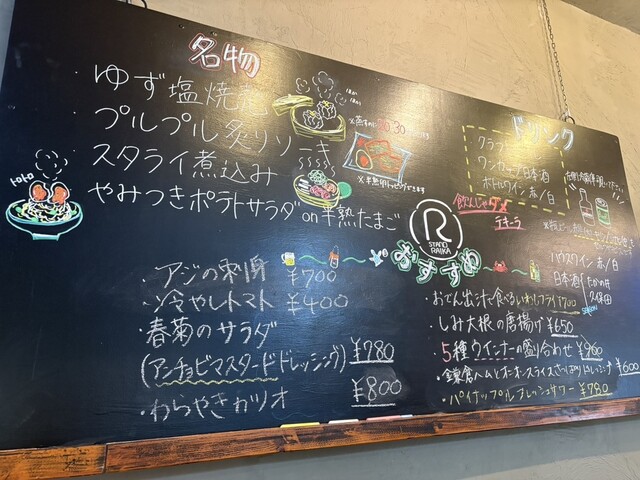 名物
ゆず塩焼売
プルプル炙りソーキ
スタライ煮込み
やみつきポテトサラダ on 半熟たまご
トロトロ
アジの刺身 ¥700
冷やしトマト ¥400
春菊のサラダ
(アンチョビマスタードドレッシング) ¥780
わらやきカツオ ¥800
ドリンク
クラフト
ワンカップ日本酒
ボトルワイン 赤/白
飲んじゃう♪
テキーラ
R
STAND
RAIKA
ハウスワイン 赤/白
日本酒
久保田
おすすめ
・おでん出汁で食べるいわしフライ 700
・しみ大根の唐揚げ ¥650
・5種ウインナーの盛り合わせ ¥960
・鎌倉ハムとオニオンスライスさっぱりドレッシング ¥600
・パイナップルフレッシュサワー ¥780